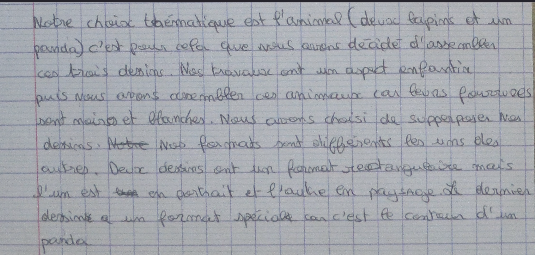 Notre choix thématique est l'animal (deux lapins et un
panda) c'est pour cela que nous avons décidé d'assembler
ces trois dessins. Nos travaux ont un aspect enfantin
puis nous avons assembler ces animaux car leurs fourrures
sont noires et blanches. Nous avons choisi de supperposer nos
dessins. Nos formats sont différents les uns des
autres. Deux dessins ont un format rectangulaire mais
l'un est en portrait et l'autre en paysage le dernier
dessin a un format spéciale car c'est le contour d'un
panda